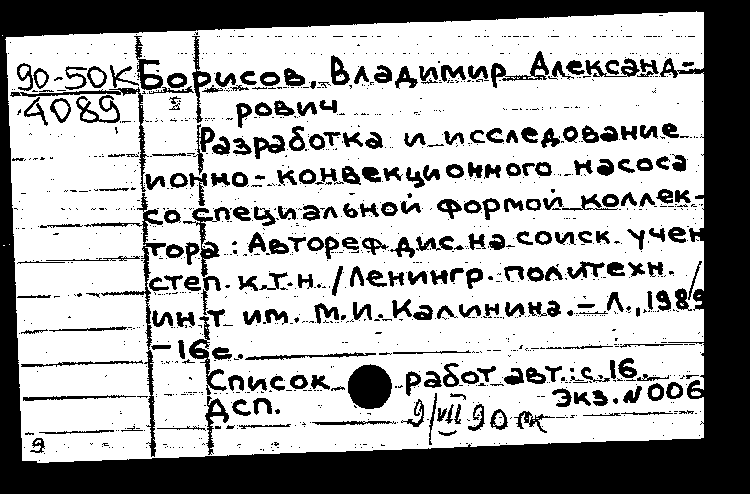 90-50К Борисов, Владимир Александ-
4089 рович
Разработка и исследование
ионно-конвекционного насоса
со специальной формой коллек-
тора: Автореф. дис. на соиск. учен
степ. к.т.н. / Ленингр. политехн.
ин-т им. М.И. Калинина. - Л., 1989
- 16с.
Список работ авт.: с. 16.
ДСП. Экз. N 006
9/VII 90
9